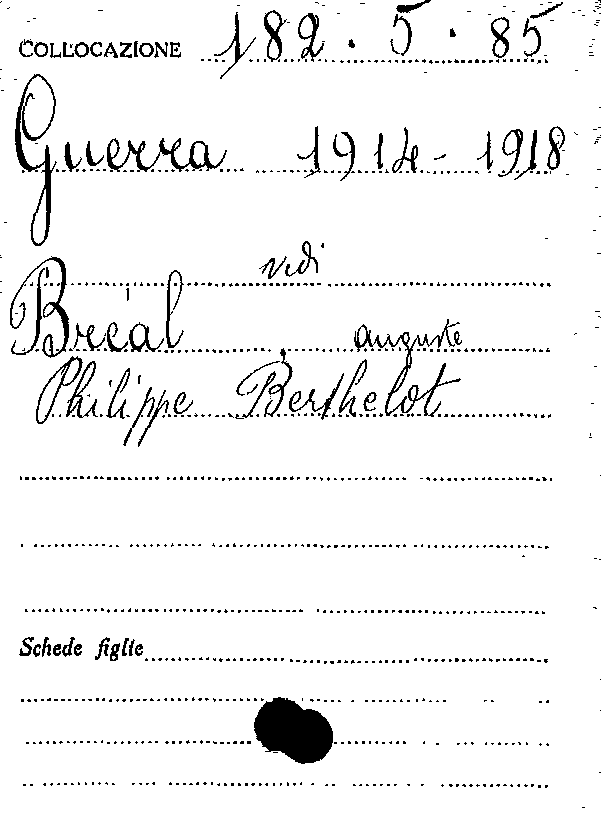 COLLOCAZIONE 182.5.85
Guerra 1914-1918
vedi
Bréal, auguste
Philippe Berthelot
Schede figlie